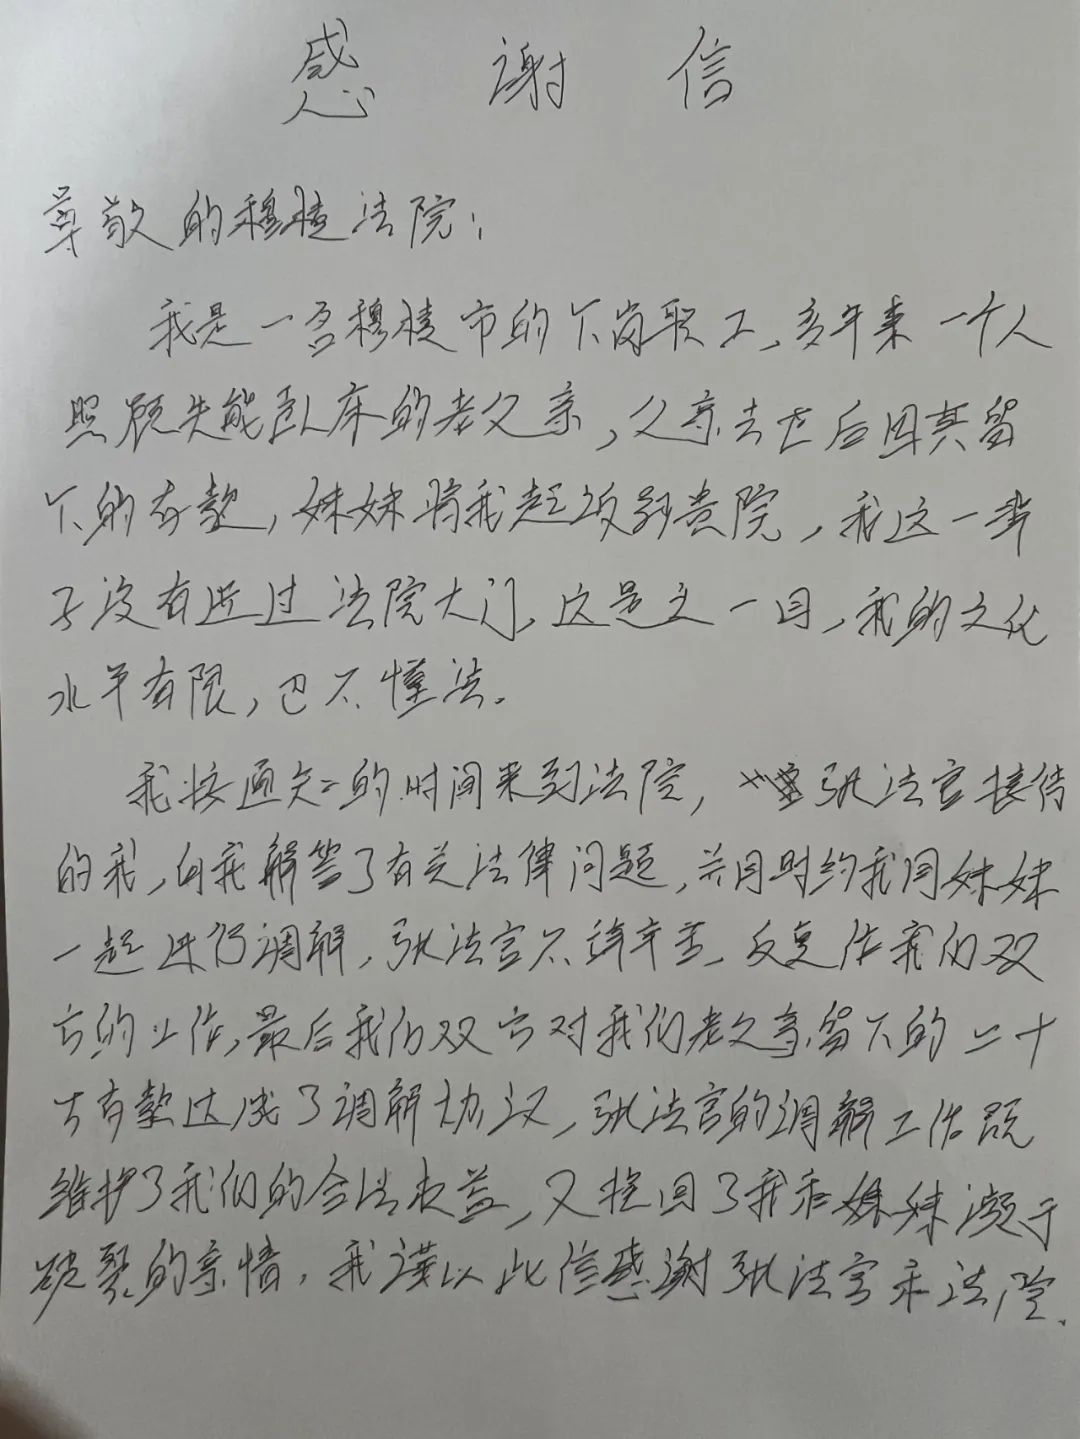 感 谢 信
尊敬的穆棱法院:
我是一名穆棱市的下岗职工,多年来一个人
照顾失能卧床的老父亲,父亲去世后因其留
下的存款,妹妹将我起诉到贵院,我这一辈
子没有进过法院大门,这是头一回,我的文化
水平有限,也不懂法。
我按通知的时间来到法院,是张法官接待
的我,向我解答了有关法律问题,并同时约我同妹妹
一起进行调解,张法官不辞辛苦,反复作我们双
方的工作,最后我们双方对我们老父亲留下的二十
万存款达成了调解协议,张法官的调解工作既
维护了我们的合法权益,又挽回了我和妹妹濒于
破裂的亲情,我谨以此信感谢张法官和法院.